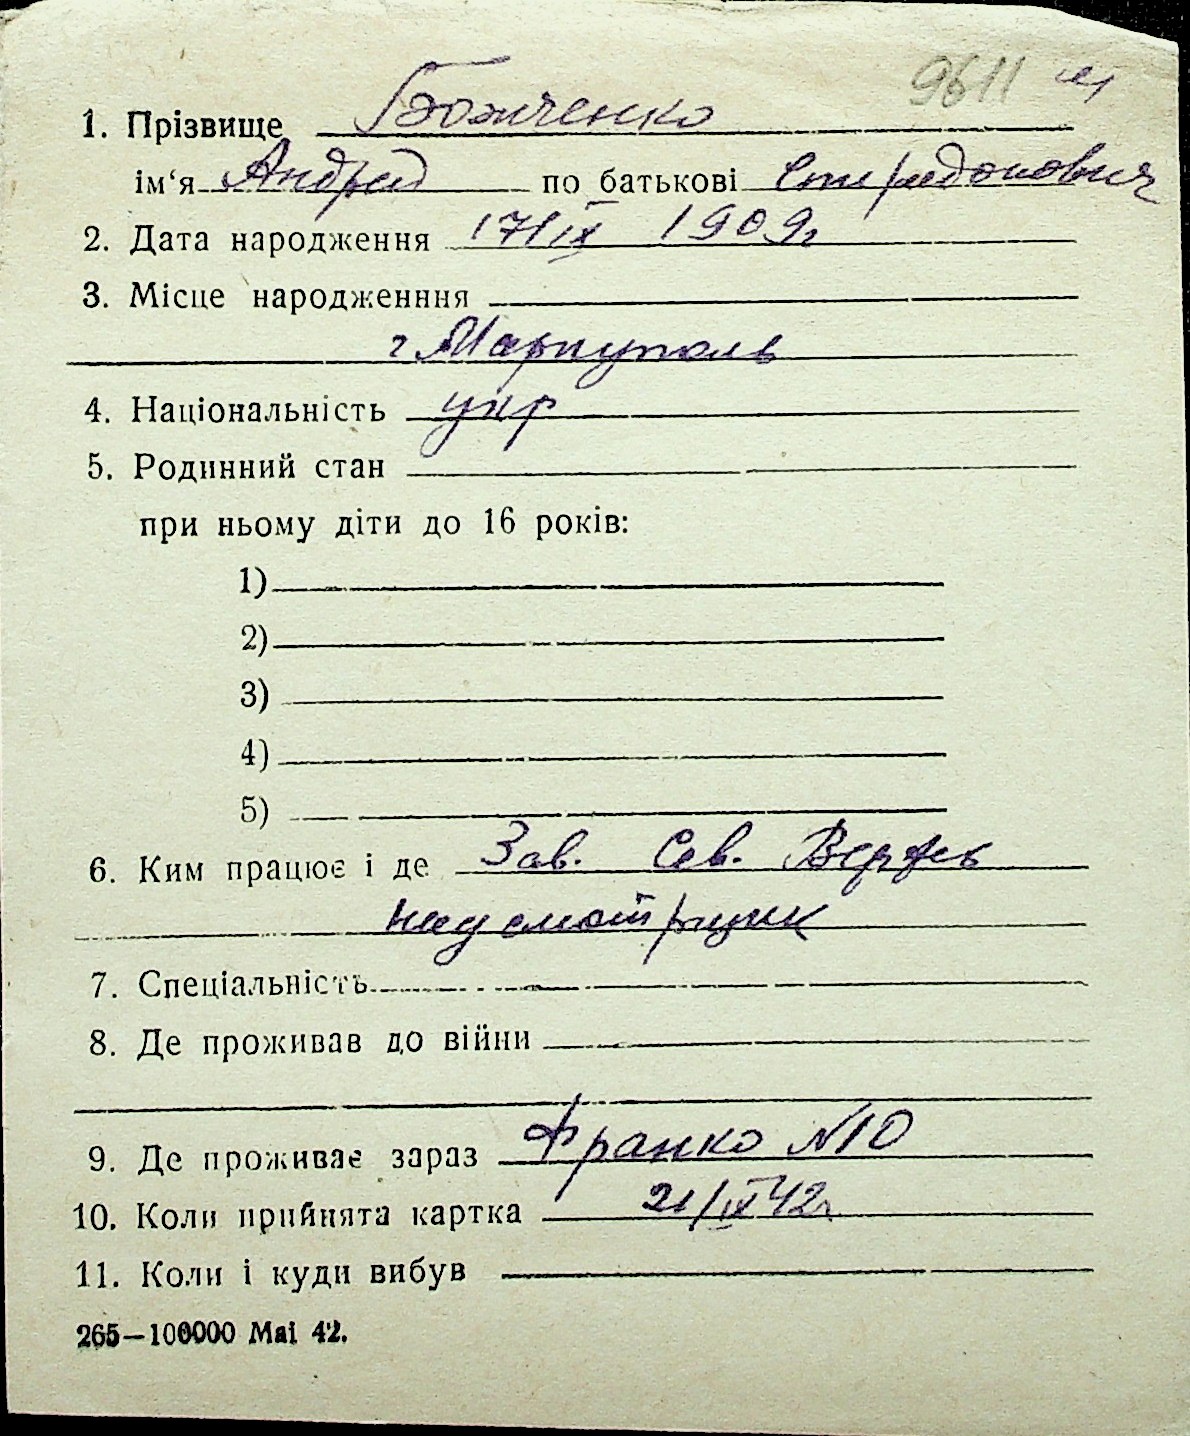 9611
1. Прізвище Божченко
ім‘я Андрей по батькові Спиридонович
2. Дата народження 17/IX 1909г
3. Місце народженння
г. Мариуполь
4. Національність укр
5. Родинний стан
при ньому діти до 16 років:
1)
2)
3)
4)
5)
6. Ким працює і де Зав. Сев. Верфь
надсмотрщик
7. Спеціальність
8. Де проживав до війни
9. Де проживає зараз Франко №10
10. Коли прийнята картка 21/IX 42г
11. Коли і куди вибув
265—100000 Mai 42.